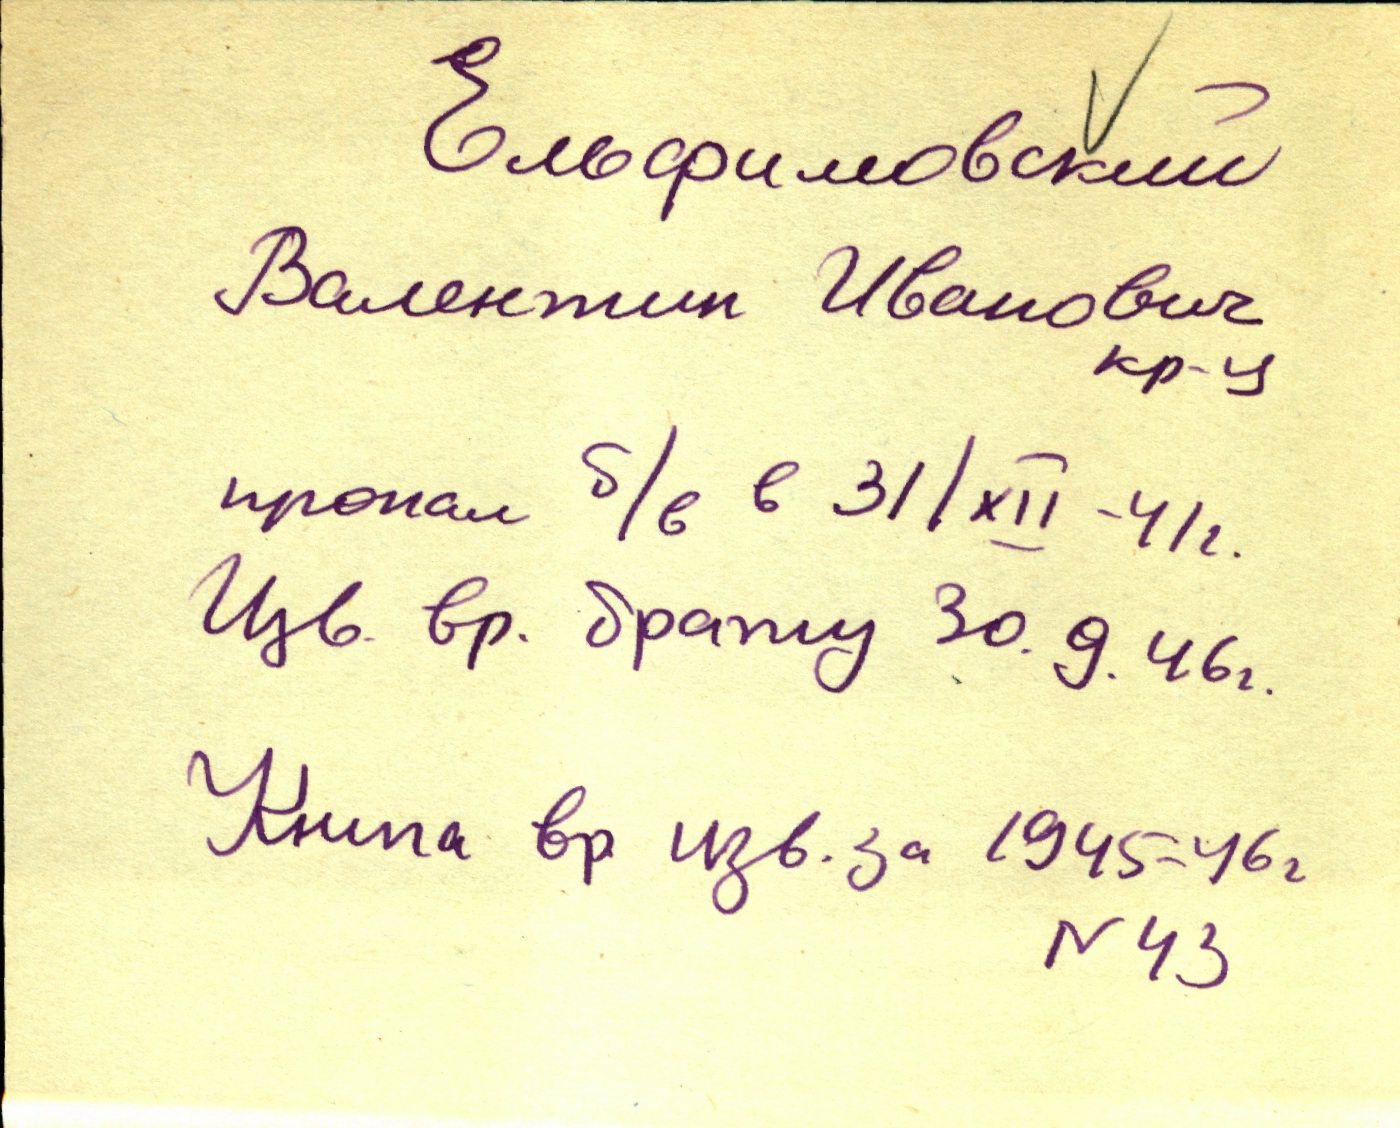 Ельфимовский
Валентин Иванович
кр-ц
пропал б/в в 31/XII-41г.
Изв. вр. брату 30.9.46г.
Книга вр изв. за 1945-46г
N 43